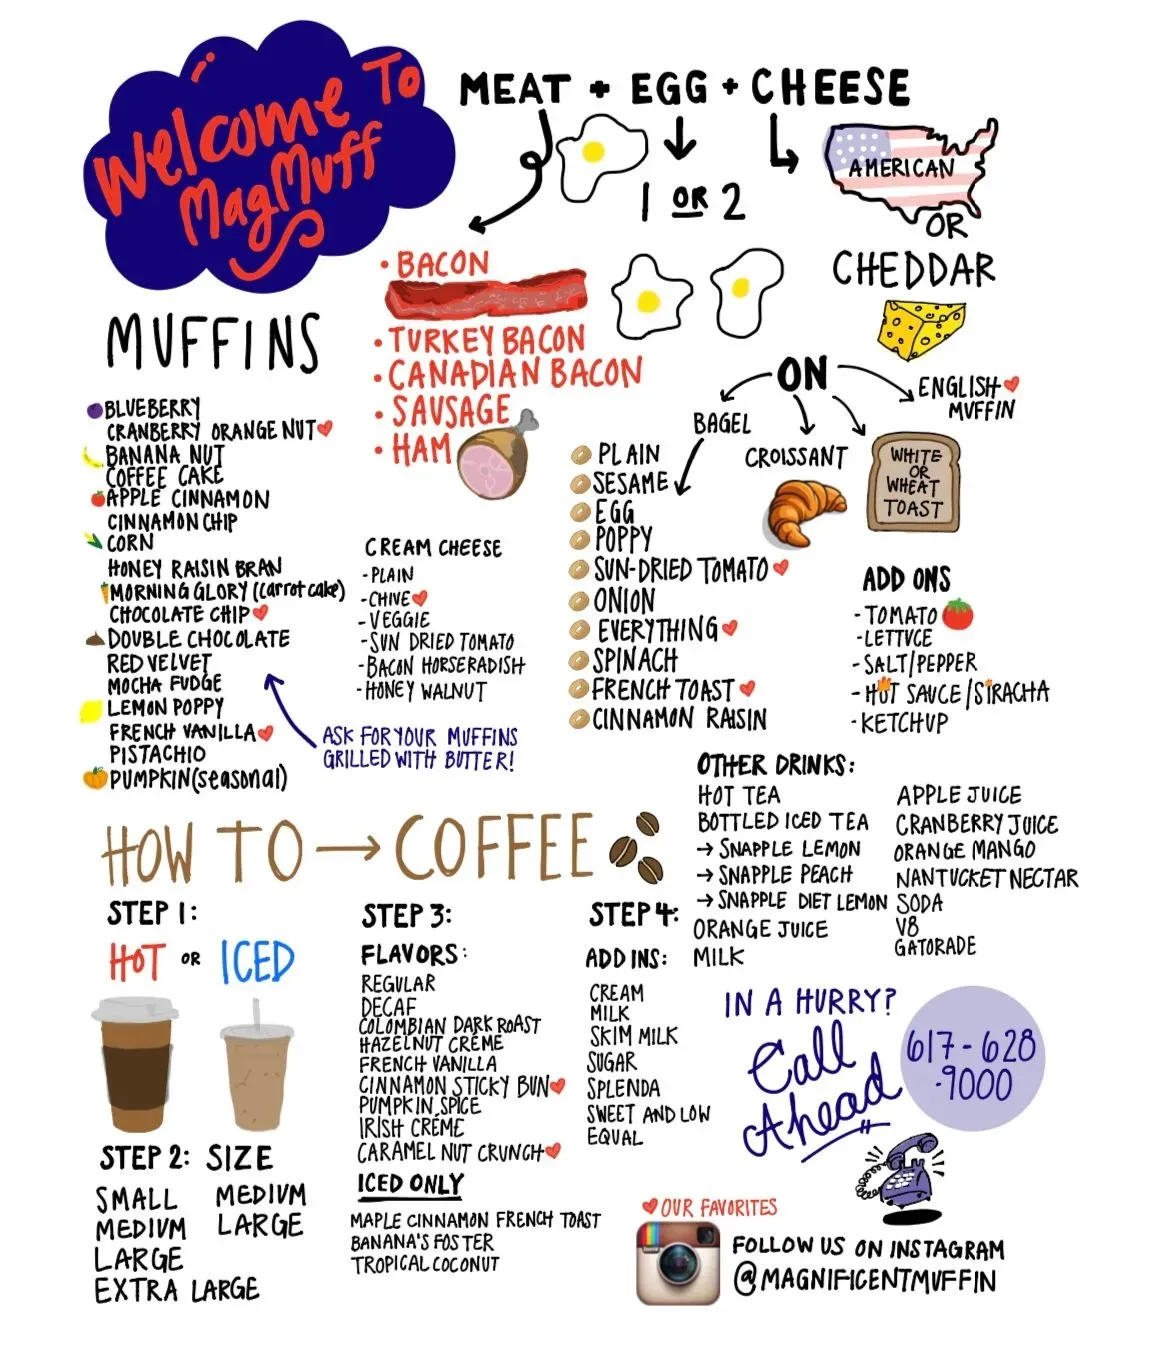 Welcome To
MagMuff
MEAT + EGG + CHEESE
1 OR 2
AMERICAN
OR
CHEDDAR
• BACON
• TURKEY BACON
• CANADIAN BACON
• SAUSAGE
• HAM
ON
BAGEL
CROISSANT
WHITE
OR
WHEAT
TOAST
ENGLISH
MUFFIN
MUFFINS
BLUEBERRY
CRANBERRY ORANGE NUT
BANANA NUT
COFFEE CAKE
APPLE CINNAMON
CINNAMON CHIP
CORN
HONEY RAISIN BRAN
MORNING GLORY (carrot cake)
CHOCOLATE CHIP
DOUBLE CHOCOLATE
RED VELVET
MOCHA FUDGE
LEMON POPPY
FRENCH VANILLA
PISTACHIO
PUMPKIN (seasonal)
ASK FOR YOUR MUFFINS
GRILLED WITH BUTTER!
CREAM CHEESE
- PLAIN
- CHIVE
- VEGGIE
- SUN DRIED TOMATO
- BACON HORSERADISH
- HONEY WALNUT
PLAIN
SESAME
EGG
POPPY
SUN-DRIED TOMATO
ONION
EVERYTHING
SPINACH
FRENCH TOAST
CINNAMON RAISIN
ADD ONS
- TOMATO
- LETTUCE
- SALT/PEPPER
- HOT SAUCE/SIRACHA
- KETCHUP
OTHER DRINKS:
HOT TEA
BOTTLED ICED TEA
→ SNAPPLE LEMON
→ SNAPPLE PEACH
→ SNAPPLE DIET LEMON
ORANGE JUICE
MILK
APPLE JUICE
CRANBERRY JUICE
ORANGE MANGO
NANTUCKET NECTAR
SODA
V8
GATORADE
HOW TO → COFFEE
STEP 1:
HOT OR ICED
STEP 2: SIZE
SMALL
MEDIUM
LARGE
EXTRA LARGE
MEDIUM
LARGE
STEP 3:
FLAVORS:
REGULAR
DECAF
COLOMBIAN DARK ROAST
HAZELNUT CRÉME
FRENCH VANILLA
CINNAMON STICKY BUN
PUMPKIN SPICE
IRISH CRÉME
CARAMEL NUT CRUNCH
ICED ONLY
MAPLE CINNAMON FRENCH TOAST
BANANA'S FOSTER
TROPICAL COCONUT
STEP 4:
ADD INS:
CREAM
MILK
SKIM MILK
SUGAR
SPLENDA
SWEET AND LOW
EQUAL
IN A HURRY?
Call
Ahead
617-628
-9000
OUR FAVORITES
FOLLOW US ON INSTAGRAM
@MAGNIFICENTMUFFIN